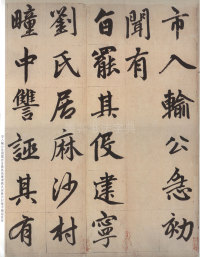 市入輸公急劾
聞有
旨罷其役建寧
劉氏居麻沙村
疃中讐誣其有